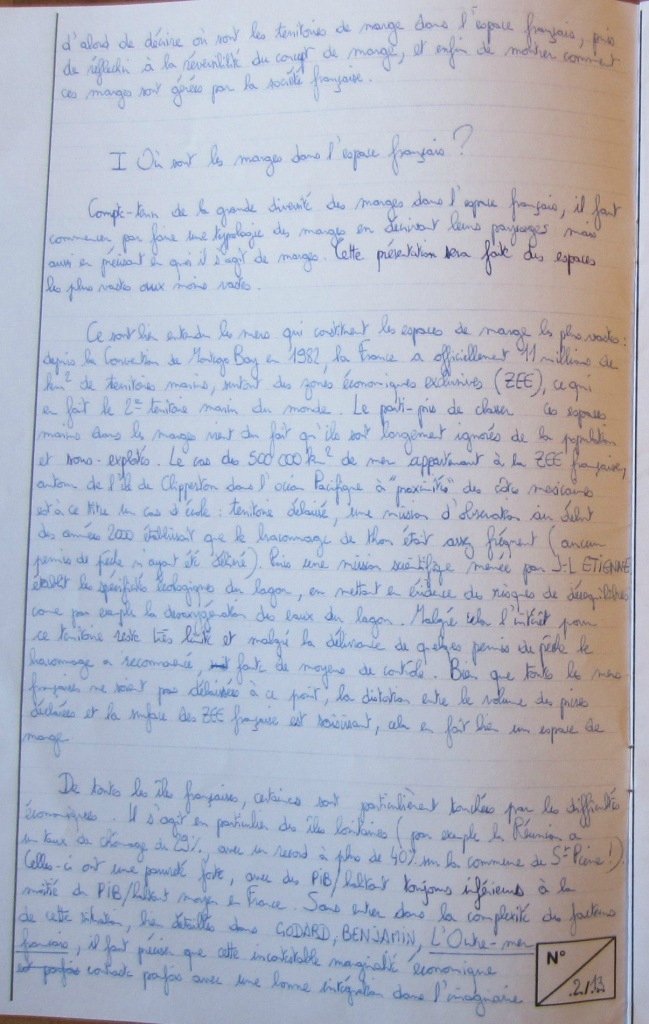 d'abord de décrire où sont les territoires de marge dans l'espace français, puis
de réfléchir à la réversibilité du concept de marge, et enfin de montrer comment
ces marges sont gérées par la société française.
I Où sont les marges dans l'espace français ?
Compte-tenu de la grande diversité des marges dans l'espace français, il faut
commencer par faire une typologie des marges en décrivant leurs paysages mais
aussi en précisant en quoi il s'agit de marges. Cette présentation sera faite des espaces
les plus vastes aux moins vastes.
Ce sont bien entendu les mers qui constituent les espaces de marge les plus vastes :
depuis la Convention de Montego Bay en 1982, la France a officiellement 11 millions de
km² de territoires marins, surtout des zones économiques exclusives (ZEE), ce qui
en fait le 2e territoire marin du monde. Le parti-pris de classer ces espaces
marins dans les marges vient du fait qu'ils sont largement ignorés de la population
et sous-exploités. Le cas des 500 000 km² de mer appartenant à la ZEE française,
autour de l'île de Clipperton dans l'océan Pacifique à "proximité" des côtes mexicaines
est à ce titre un cas d'école : territoire délaissé, une mission d'observation au début
des années 2000 établissait que le braconnage de thon était assez fréquent (aucun
permis de pêche n'ayant été délivré). Puis une mission scientifique menée par J-L ETIENNE
établit les spécificités écologiques du lagon, en mettant en évidence des risques de déséquilibres
comme par exemple la désoxygénation des eaux du lagon. Malgré cela l'intérêt pour
ce territoire reste très limité et malgré la délivrance de quelques permis de pêche le
braconnage a recommencé, faute de moyens de contrôle. Bien que toutes les mers
françaises ne soient pas délaissées à ce point, la distorsion entre le volume des prises
déclarées et la surface des ZEE française est saisissant, cela en fait bien un espace de
marge.
De toutes les îles françaises, certaines sont particulièrement touchées par les difficultés
économiques. Il s'agit en particulier des îles lointaines (par exemple la Réunion a
un taux de chômage de 29%, avec un record à plus de 40% sur la commune de St Pierre !).
Celles-ci ont une pauvreté forte, avec des PIB/habitant toujours inférieurs à la
moitié du PIB/habitant moyen en France. Sans entrer dans la complexité des facteurs
de cette situation, bien détaillés dans GODARD, BENJAMIN, L'Outre-mer
français, il faut préciser que cette incontestable marginalité économique
contraste parfois avec une bonne intégration dans l'imaginaire
N°
2/13